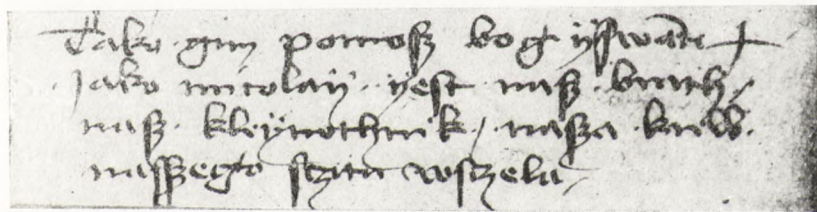 Tako gim pomosz bog ÿ sswāte +
Jako micolaÿ · yest · nasz · brath /
nasz · kleÿnothnik / nasza · krew ·
nasszego sczitu wsczela /